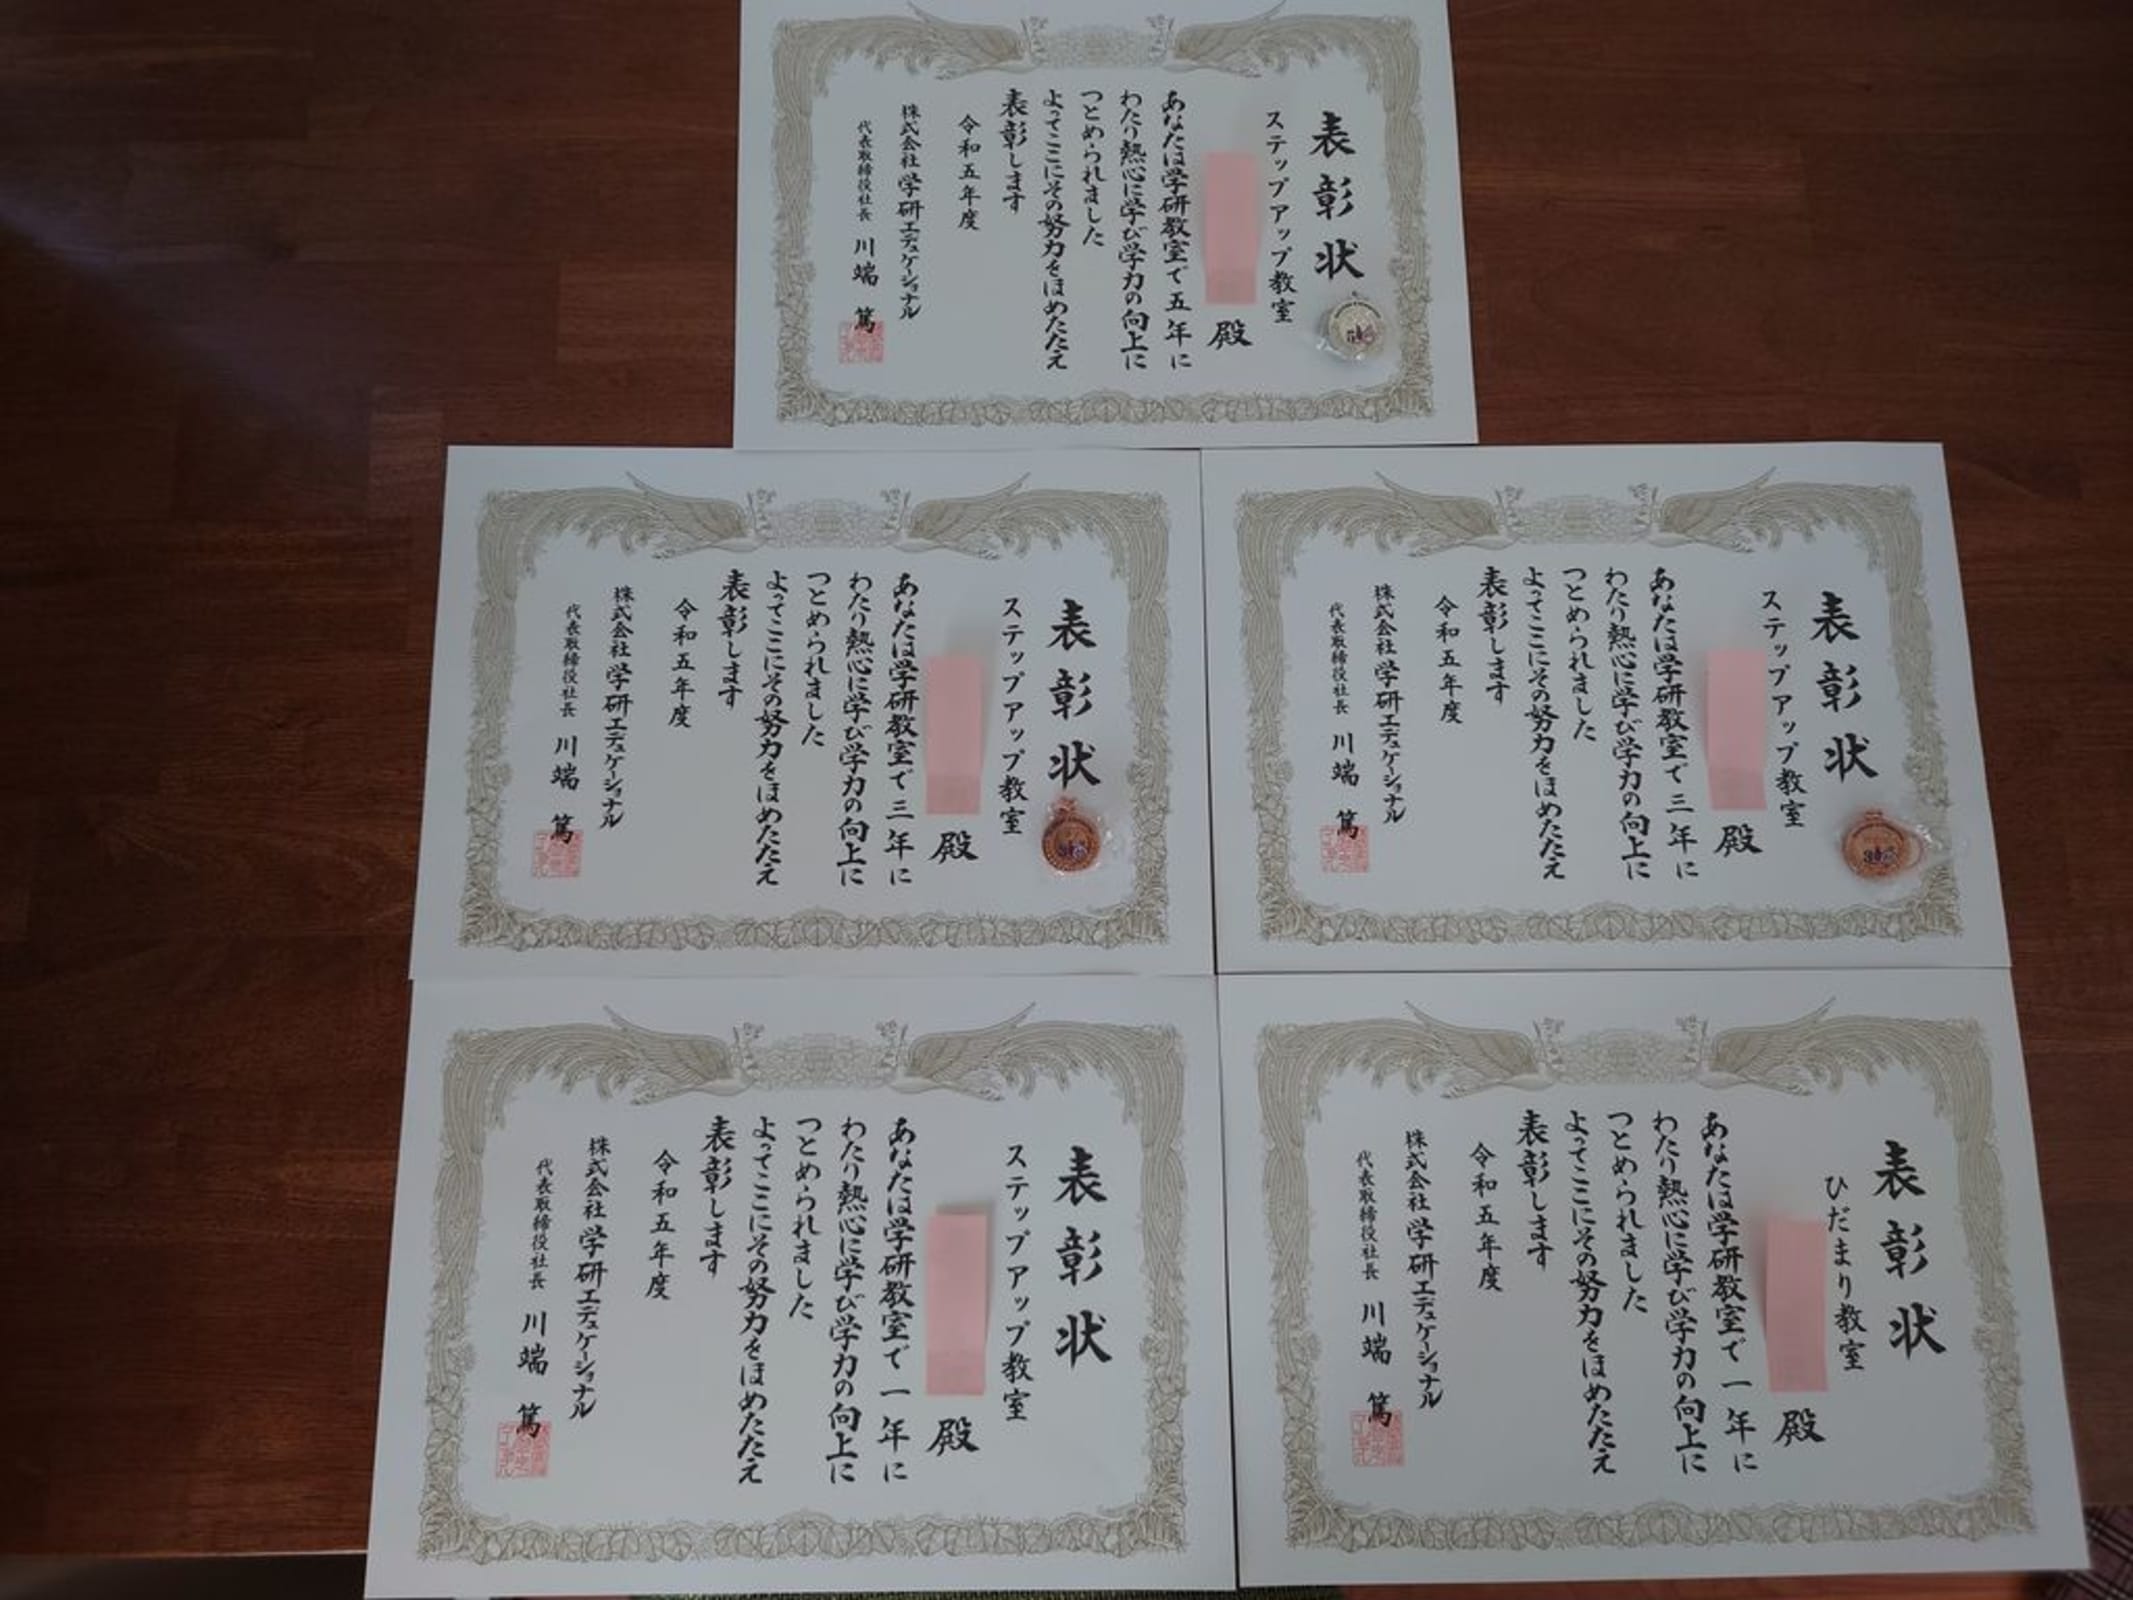 表彰状
ステップアップ教室
殿
あなたは学研教室で五年に
わたり熱心に学び学力の向上に
つとめられました
よってここにその努力をほめたたえ
表彰します
令和五年度
株式会社 学研エデュケーショナル
代表取締役社長 川端 篤
表彰状
ステップアップ教室
殿
あなたは学研教室で三年に
わたり熱心に学び学力の向上に
つとめられました
よってここにその努力をほめたたえ
表彰します
令和五年度
株式会社 学研エデュケーショナル
代表取締役社長 川端 篤
表彰状
ステップアップ教室
殿
あなたは学研教室で三年に
わたり熱心に学び学力の向上に
つとめられました
よってここにその努力をほめたたえ
表彰します
令和五年度
株式会社 学研エデュケーショナル
代表取締役社長 川端 篤
表彰状
ステップアップ教室
殿
あなたは学研教室で一年に
わたり熱心に学び学力の向上に
つとめられました
よってここにその努力をほめたたえ
表彰します
令和五年度
株式会社 学研エデュケーショナル
代表取締役社長 川端 篤
表彰状
ひだまり教室
殿
あなたは学研教室で一年に
わたり熱心に学び学力の向上に
つとめられました
よってここにその努力をほめたたえ
表彰します
令和五年度
株式会社 学研エデュケーショナル
代表取締役社長 川端 篤